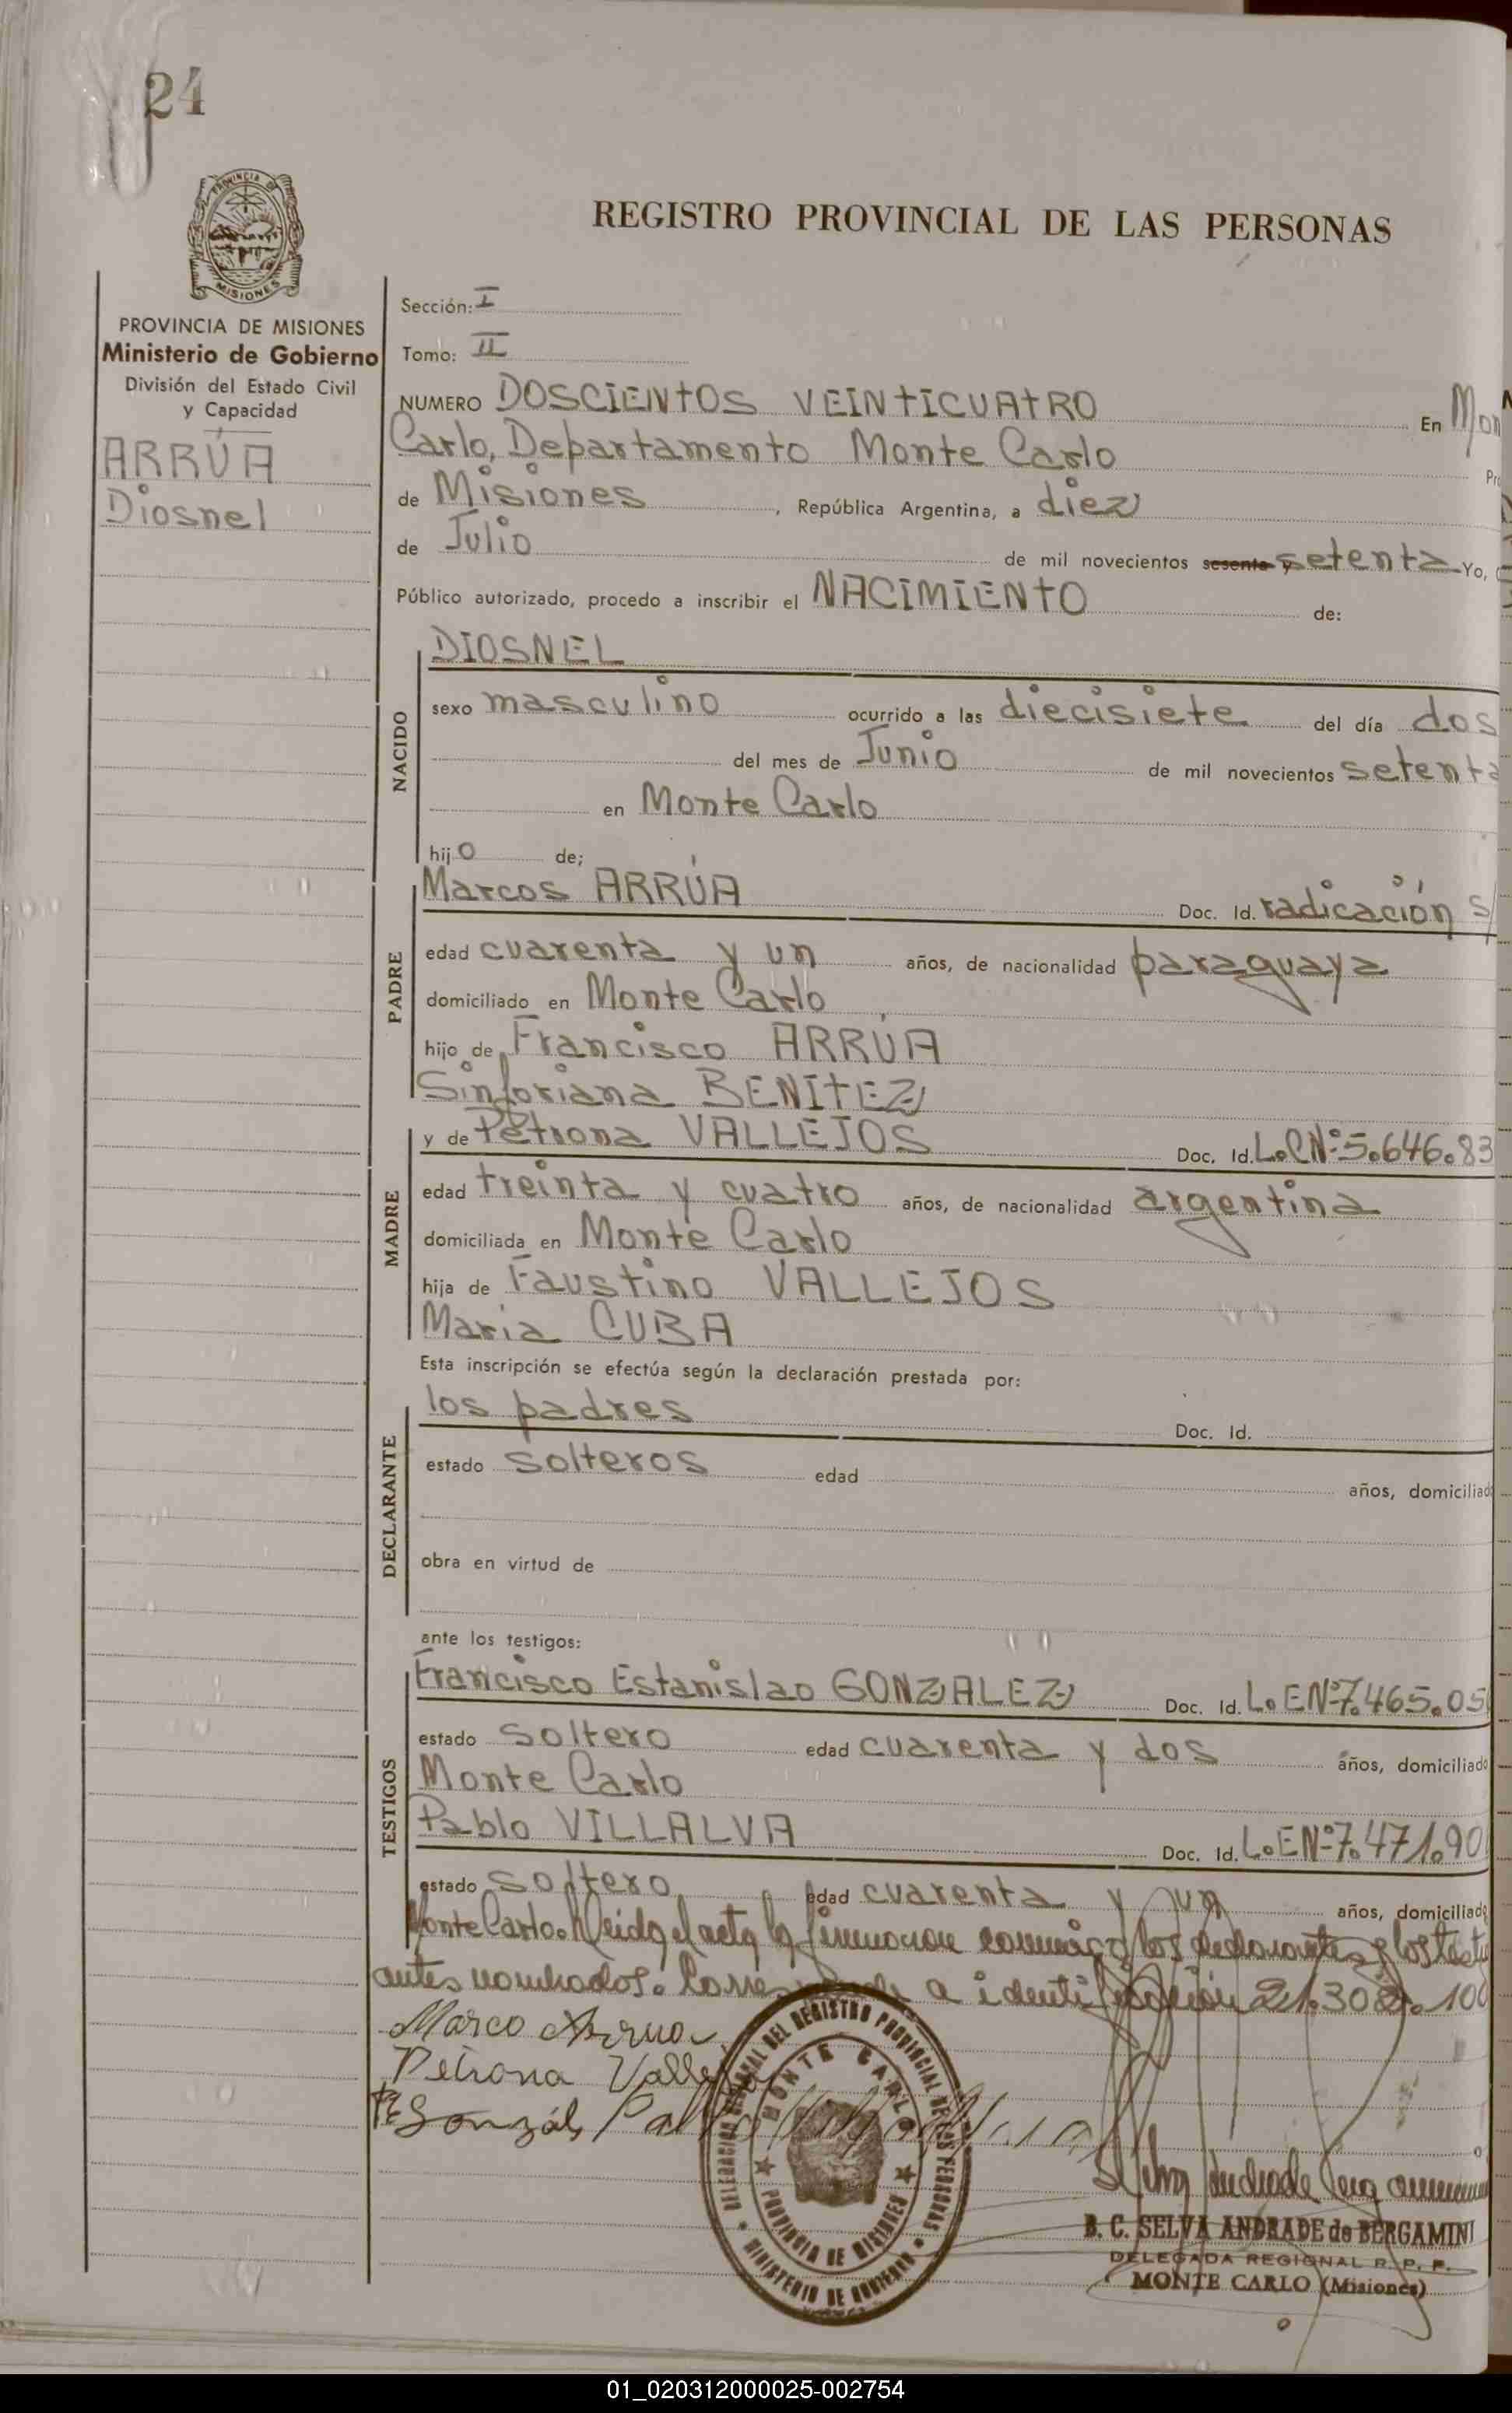 24
PROVINCIA DE
MISIONES
REGISTRO PROVINCIAL DE LAS PERSONAS
PROVINCIA DE MISIONES
Ministerio de Gobierno
División del Estado Civil
y Capacidad
ARRÚA
Diosnel
Sección: I
Tomo: II
NUMERO DOSCIENTOS VEINTICUATRO En Mon
Carlo, Departamento Monte Carlo
de Misiones, República Argentina, a diez
de Julio de mil novecientos sesenta y setenta Yo,
Público autorizado, procedo a inscribir el NACIMIENTO de:
NACIDO
DIOSNEL
sexo masculino ocurrido a las diecisiete del día dos
del mes de Junio de mil novecientos setenta
en Monte Carlo
hijo de;
PADRE
Marcos ARRÚA Doc. Id. radicación S/
edad cuarenta y un años, de nacionalidad paraguaya
domiciliado en Monte Carlo
hijo de Francisco ARRÚA
Sinforiana BENÍTEZ
MADRE
y de Petrona VALLEJOS Doc. Id. L.C.Nº 5.646.83
edad treinta y cuatro años, de nacionalidad argentina
domiciliada en Monte Carlo
hija de Faustino VALLEJOS
María CUBA
Esta inscripción se efectúa según la declaración prestada por:
DECLARANTE
los padres Doc. Id.
estado solteros edad años, domiciliado
obra en virtud de
ante los testigos:
TESTIGOS
Francisco Estanislao GONZALEZ Doc. Id. L.E.Nº 7.465.05
estado soltero edad cuarenta y dos años, domiciliado
Monte Carlo
Pablo VILLALVA Doc. Id. L.E.Nº 7.471.90
estado soltero edad cuarenta y un años, domiciliado
Monte Carlo. Leida el acta la firmaron conmigo los declarantes y los testi
antes nombrados. a identificación 21.302.100
Marco Arrua
Petrona Vallejo
F E Gonzáls Pablo Villalva
DELEGACION REGIONAL DEL REGISTRO PROVINCIAL DE LAS PERSONAS
MONTE CARLO
PROVINCIA DE MISIONES
MINISTERIO DE GOBIERNO
B. C. SELVA ANDRADE de BERGAMINI
DELEGADA REGIONAL R. P. P.
MONTE CARLO (Misiones)
01_020312000025-002754